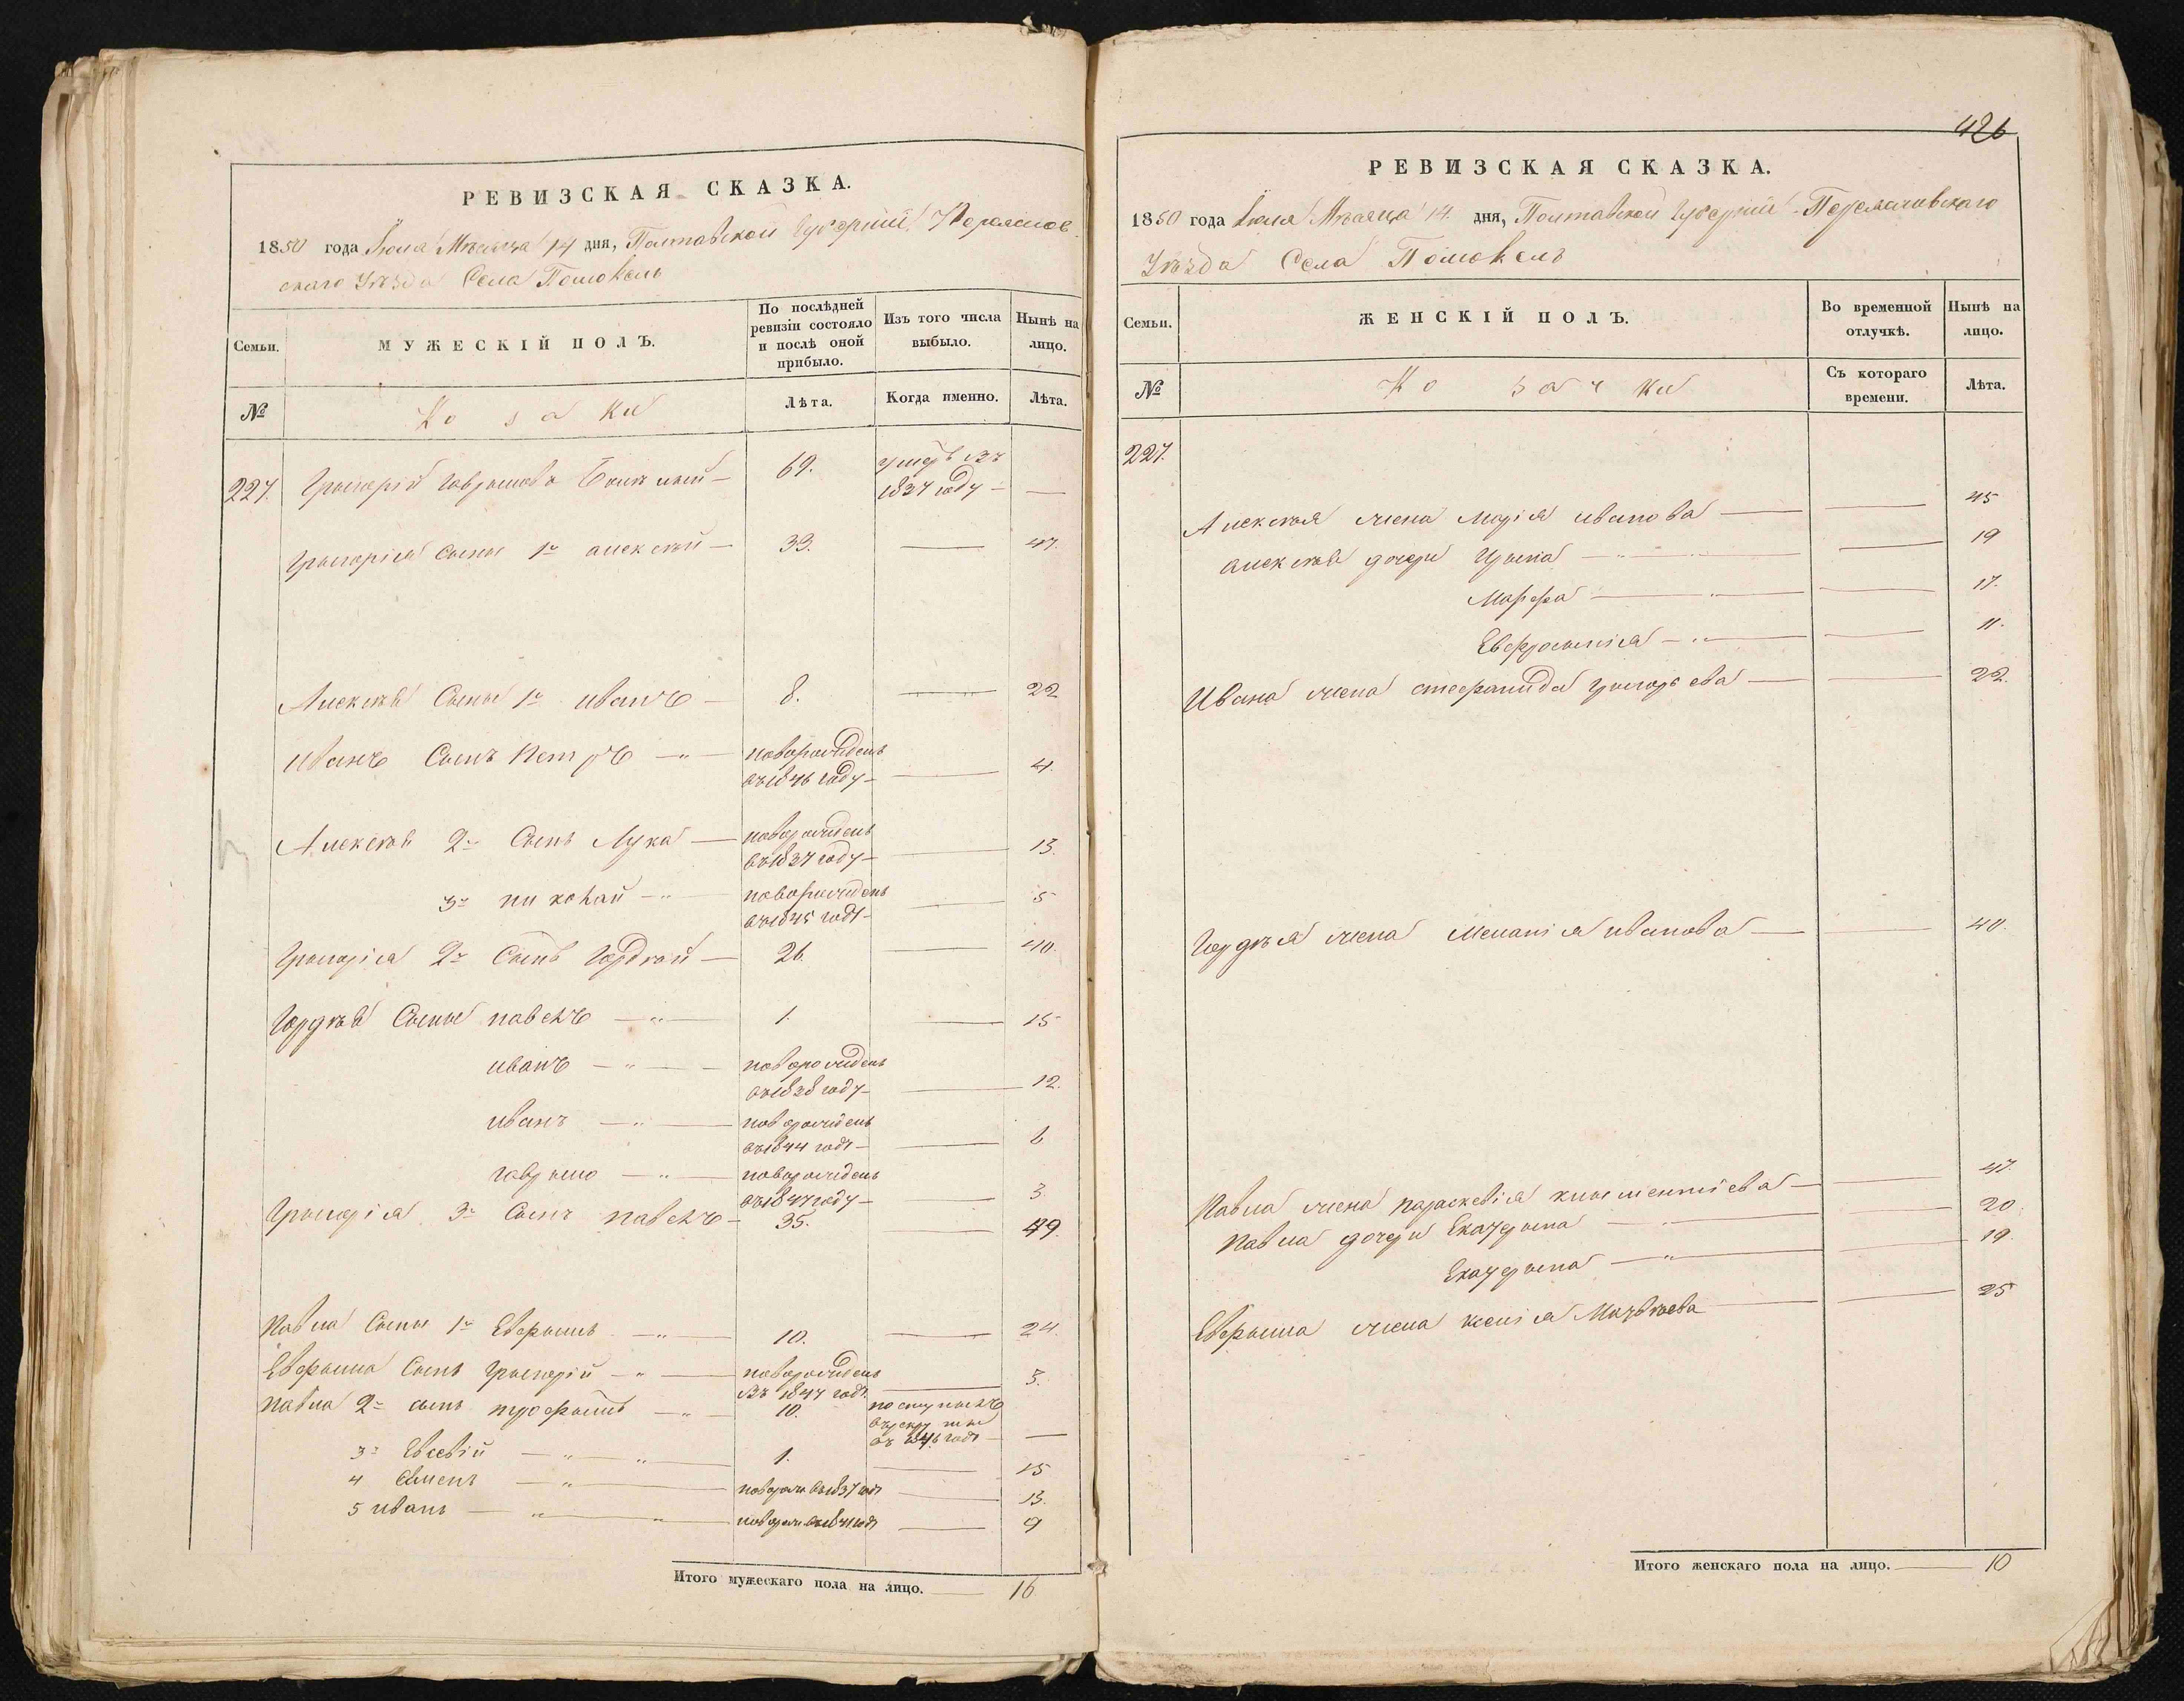 РЕВИЗСКАЯ СКАЗКА.
1850 года Июля Мѣсяца 14 дня, Полтавской Губерніи, Переяслов
скаго Уѣзда Села Помокель
Семьи.
МУЖЕСКІЙ ПОЛЪ.
По послѣдней ревизіи состояло и послѣ оной прибыло.
Изъ того числа выбыло.
Нынѣ на лицо.
№
Козаки
Лѣта.
Когда именно.
Лѣта.
227. Григорій Гаврилова 69. умеръ въ
1837 году — —
Григорія Сыны 1й алексѣй — 33. — 47.
Алексѣя Сыны 1й иванъ — 8. — 22
иванъ Сынъ Петръ — „ — новорожденъ
въ 1846 году — — 4.
Алексѣя 2й Сынъ Лука — новорожденъ
въ 1837 году — — 13.
3й николай — „ — новорожденъ
въ 1845 годѣ — — 5
Григорія 2й Сынъ Гордѣй — 26. — 40.
Гордѣя Сыны павелъ — „ — 1. — 15
иванъ — „ — новорожденъ
въ 1838 году — — 12.
иванъ — „ — новорожденъ
въ 1844 годѣ — — 6
гаврило — „ — новорожденъ
въ 1847 году — — 3.
Григорія 3й Сынъ павелъ — 35. — 49.
Павла Сыны 1й Ефримъ — „ — 10. — 24.
Ефрима Сынъ Григорій — „ — новорожденъ
въ 1847 годѣ. — 3.
павла 2й сынъ трофимъ — „ — 10. поступилъ
въ рекруты
въ 1846 годѣ — —
3й Евсевій — „ — „ — 1. — 15
4 Семенъ — „ — новорож въ 1837 годѣ — 13.
5 иванъ — „ — „ — новорож въ 1841 годѣ — 9
Итого мужескаго пола на лицо. — 16
426
РЕВИЗСКАЯ СКАЗКА.
1850 года Июля Мѣсяца 14 дня, Полтавской Губерніи Переясловскаго
Уѣзда Села Помокель
Семьи.
ЖЕНСКІЙ ПОЛЪ.
Во временной отлучкѣ.
Нынѣ на лицо.
№
Козачки
Съ котораго времени.
Лѣта.
227.
Алексѣя жена Марія иванова — — 45
алексѣя дочери Ирина — „ — — 19
Марфа — „ — — 17.
Евфросинія — „ — — 11.
Ивана жена стефанида григорьева — — 22.
Гордѣя жена Меланія иванова — — 40.
Павла жена параскевія климентіева — — 47.
павла дочери Екатерина — „ — — 20.
Екатерина — „ — — 19.
Ефрима жена ксенія Матвѣева — — 25
Итого женскаго пола на лицо. — 10